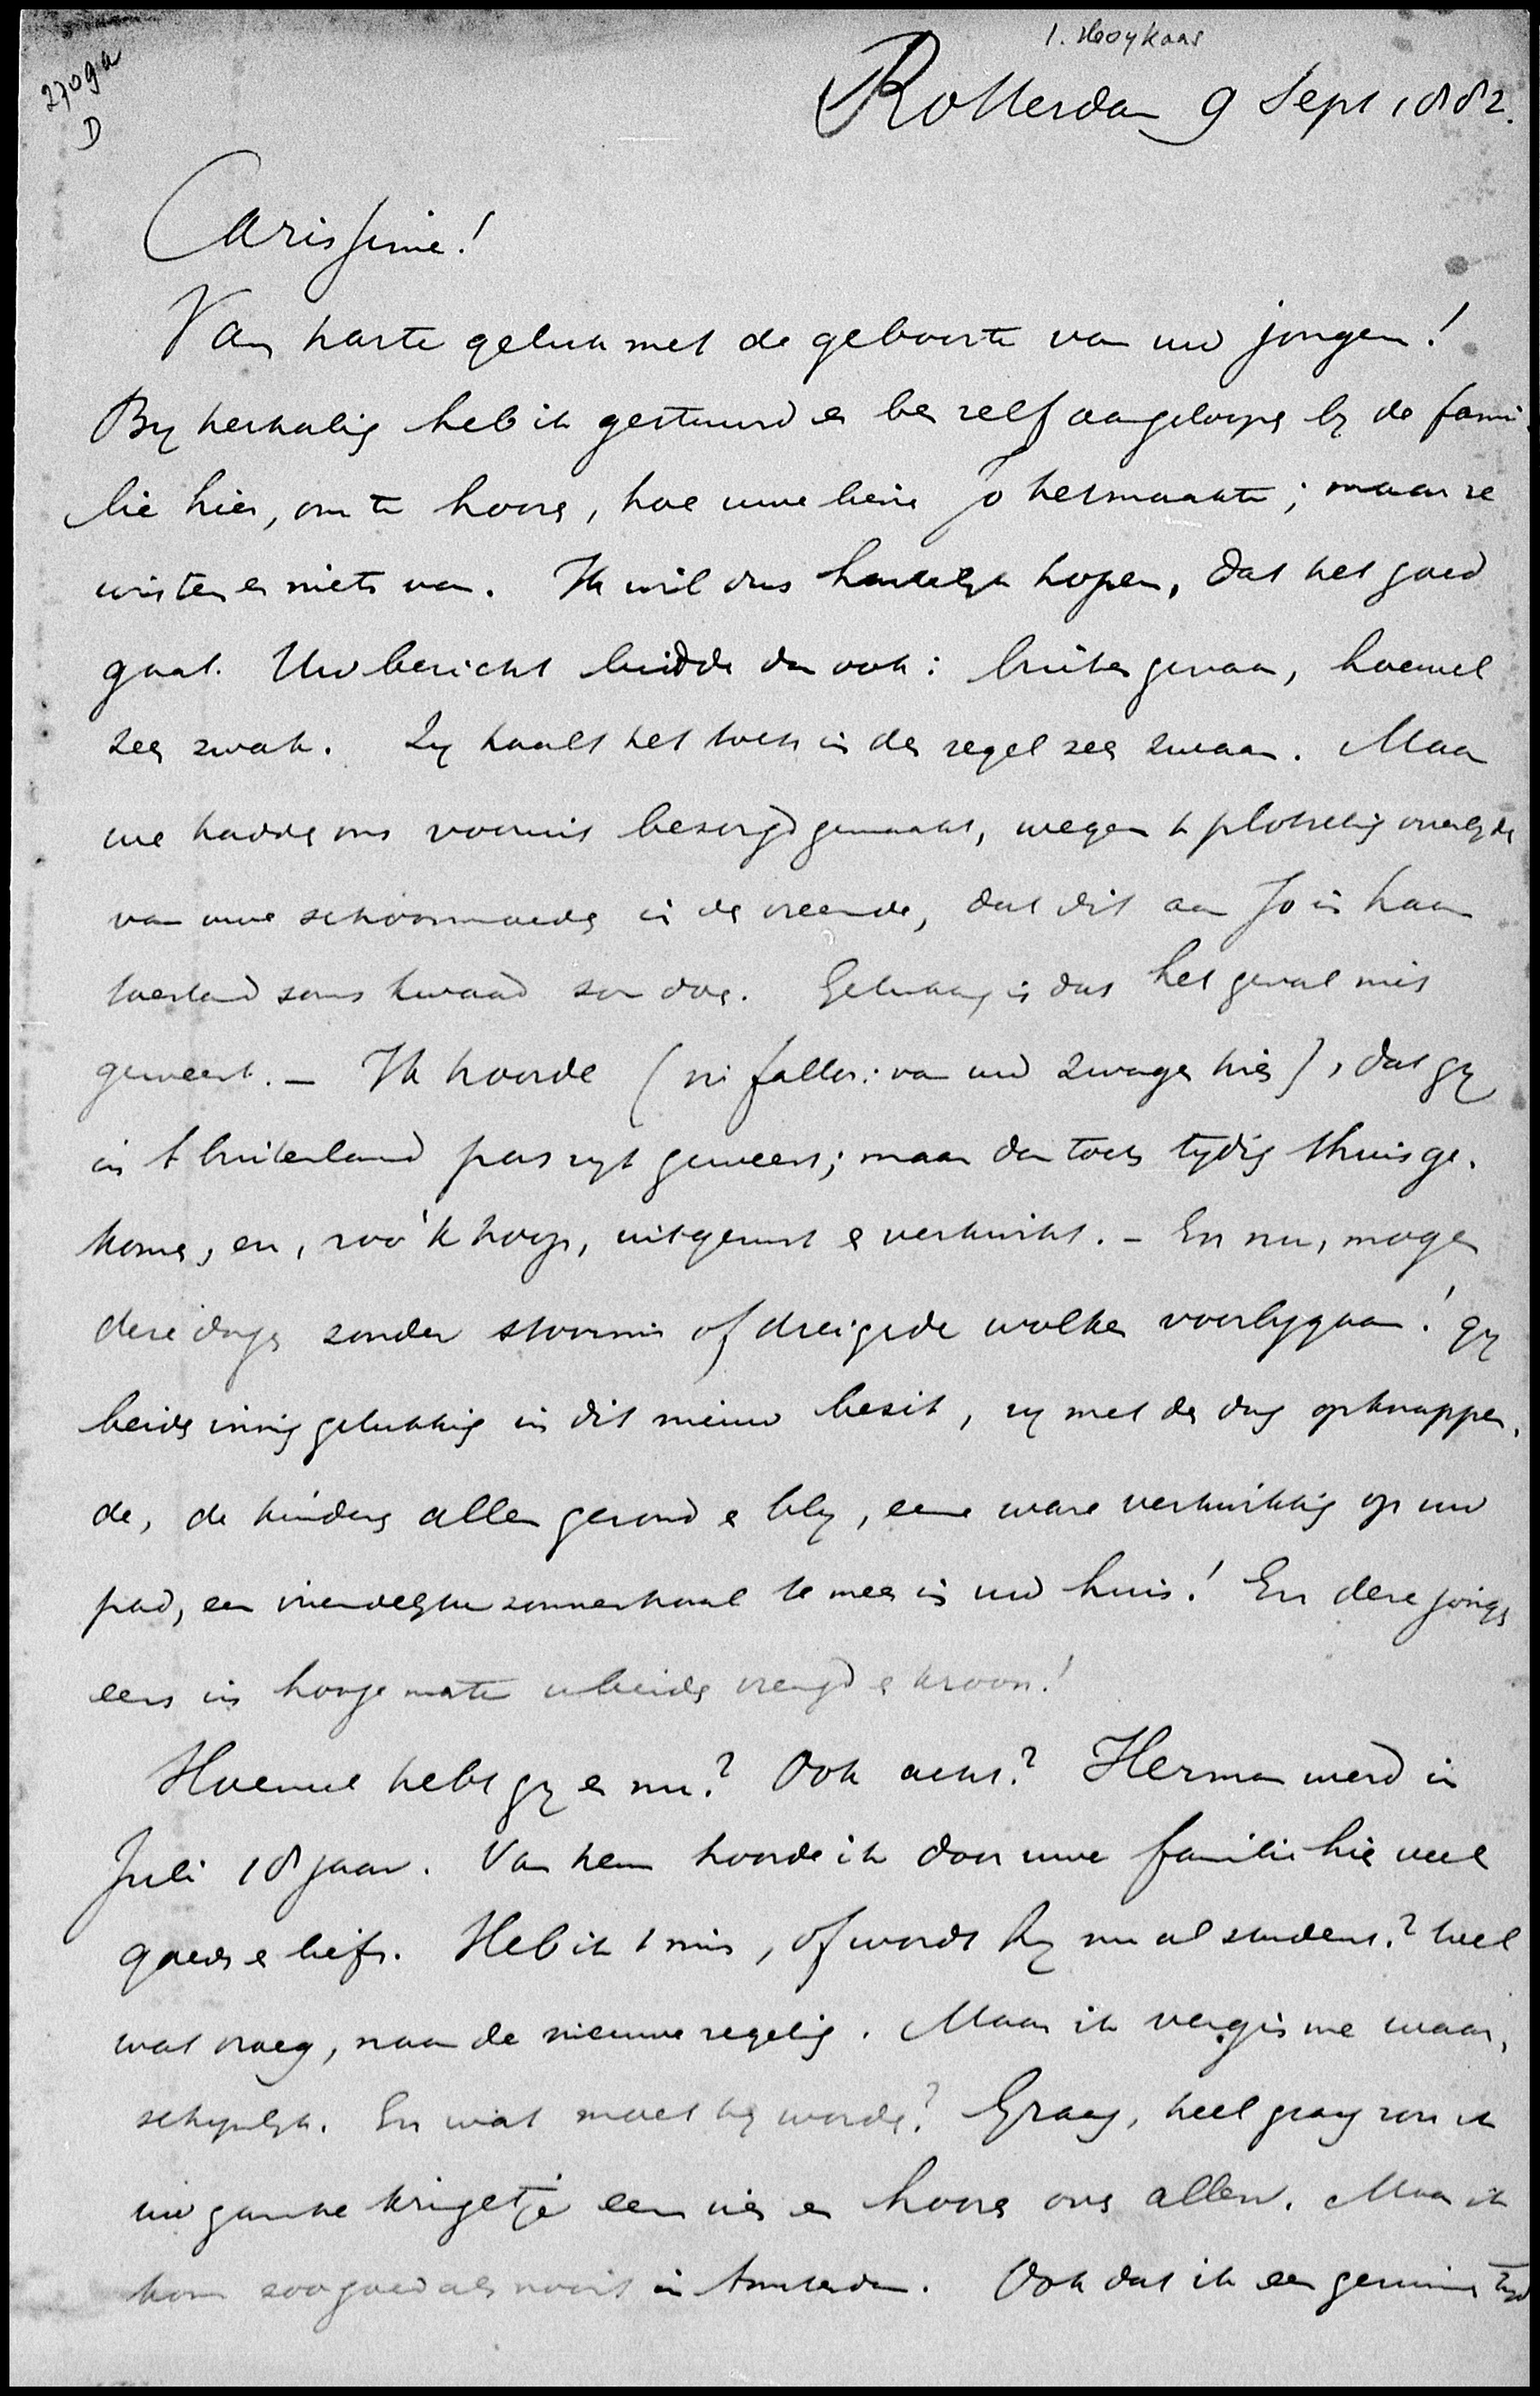 I. Hooykaas
2709a
D
Rotterdam 9 Sept 1882.
Carissime!
Van harte geluk met de geboorte van uw jongen!
By herhaling heb ik gestuurd en ben zelf aangeloopen by de fami-
lie hier, om te hooren, hoe uwe lieve Jo het maakte; maar ze
wisten er niets van. Ik wil dus hartelyk hopen, dat het goed
gaat. Uw bericht luidde dan ook: buiten gevaar, hoewel
zeer zwak. Zy haalt het toch in den regel zeer zwaar. Maar
we hadden ons vooruit bezorgd gemaakt, wegens 't plotseling overlyden
van uwe schoonmoeder in den vreemde, dat dit aan Jo in haar
toestand soms kwaad zou doen. Gelukkig is dat het geval niet
geweest. – Ik hoorde (ni fallor: van uw zwager hier), dat gy
in 't buitenland pas zyt geweest; maar dan toch tydig thuis ge-
komen, en, zoo 'k hoop, uitgerust en verkwikt. – En nu, mogen
deze dagen zonder stoornis of dreigende wolken voorbygaan! gy
beiden innig gelukkig in dit nieuw bezit, zy met den dag opknappen-
de, de kinders allen gezond en bly, eene ware verkwikking op uw
pad, een vriendelyke zonnestraal te meer in uw huis! En deze jongen
eens in hooge mate u beider vreugd en kroon!
Hoeveel hebt gy er nu? Ook acht? Herman werd in
Juli 18 jaar. Van hem hoorde ik door uwe familie hier veel
goeds en liefs. Heb ik 't mis, of wordt hy nu al student? wel
wat vroeg, naar de nieuwe regeling. Maar ik vergis me waar-
schynlyk. En wat moet hy worden? Graag, heel graag zou ik
uw gansche kringetje eens zien en hooren ons allen. Maar ik
kom zoo goed als nooit in Amsterdam. Ook dat ik een geruimen tyd